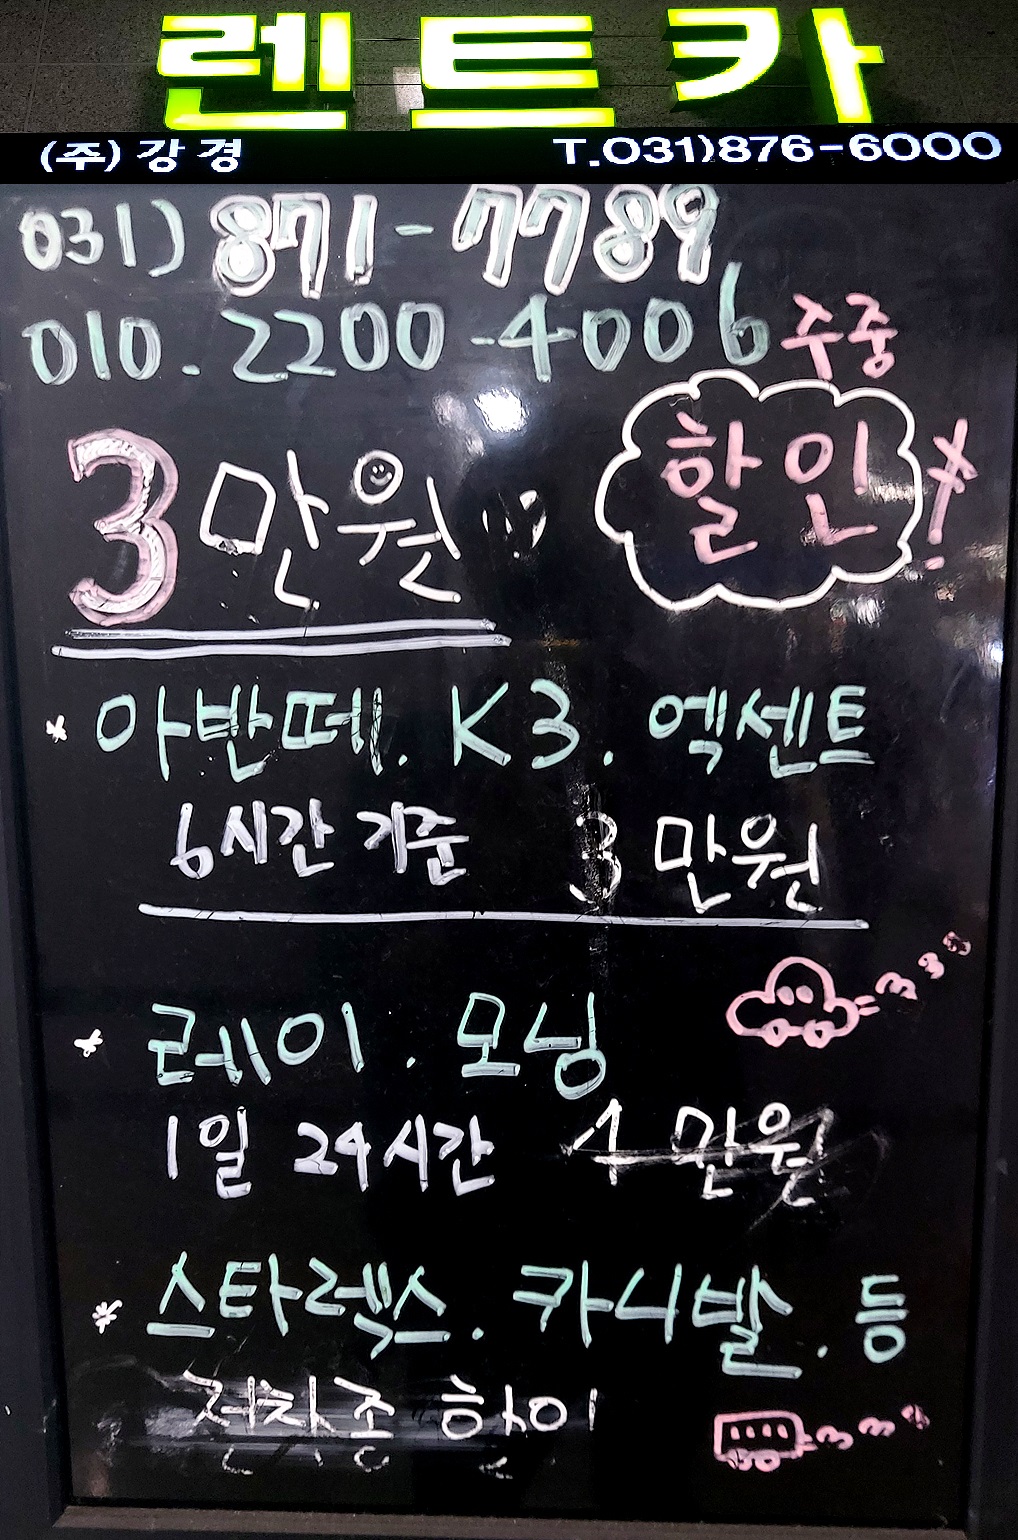 렌트카
(주) 강경 T.031)876-6000
031) 871-7789
010.2200-4006 주중
3만원 할인!
* 아반떼. K3. 엑센트
6시간 기준 3만원
* 레이. 모닝
1일 24시간 4만원
* 스타렉스. 카니발. 등
전차종 할인